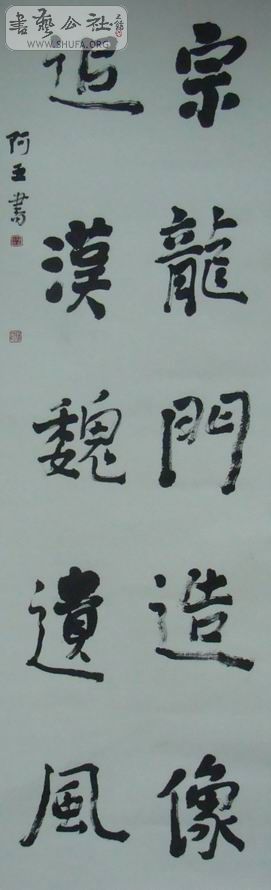 宗龍門造像
追漢魏遺風
阿王書
書藝公社
WWW.SHUFA.ORG